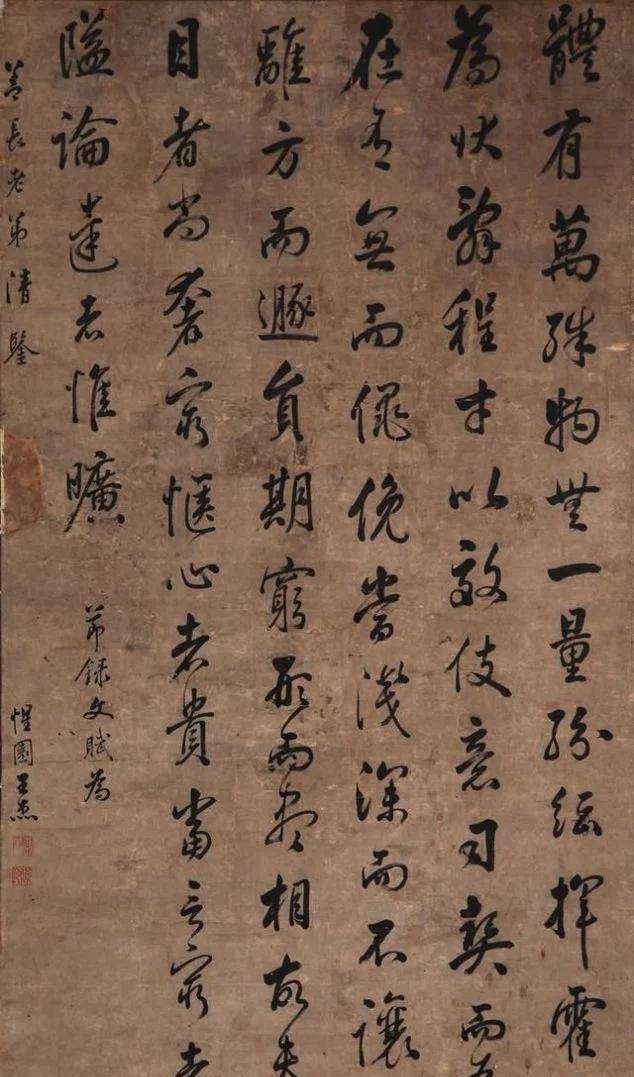 體有萬殊物無一量紛紜揮霍
為狀辭程才以效伎意司契而為
在有無而僶俛當淺深而不讓
離方而遯員期窮形而盡相故夫
目者尚奢愜心者貴當言窮者
隘論達者惟曠
節錄文賦為
善長老弟清鑒
惺園王杰